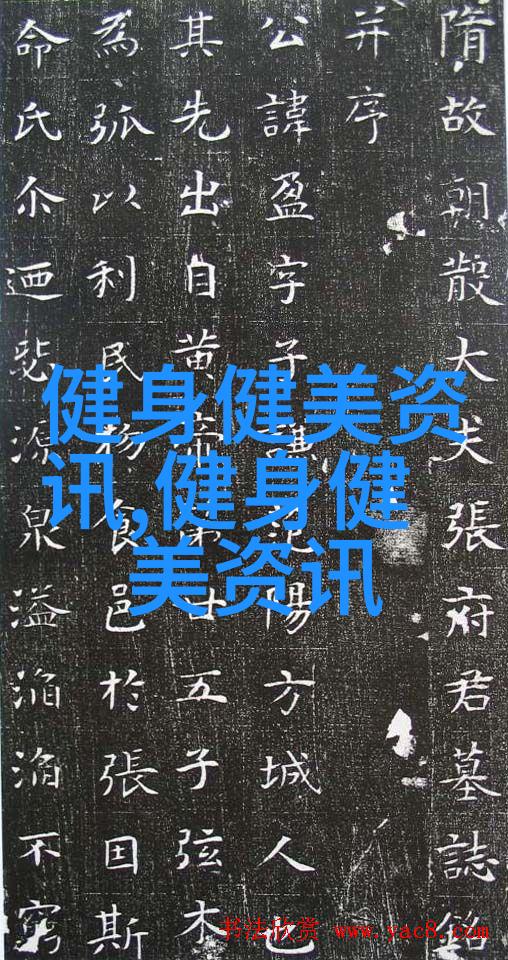 隋故朝散大夫張府君墓誌銘
并序
公諱盈字子陽方城人也
其先出自黄帝廿五子弦木
為弧以利民物食邑於張因斯
命氏尒迺源泉溢滔滔不窮
健身健美资
讯,健身健
美资讯
书法欣赏 www.yac8.com